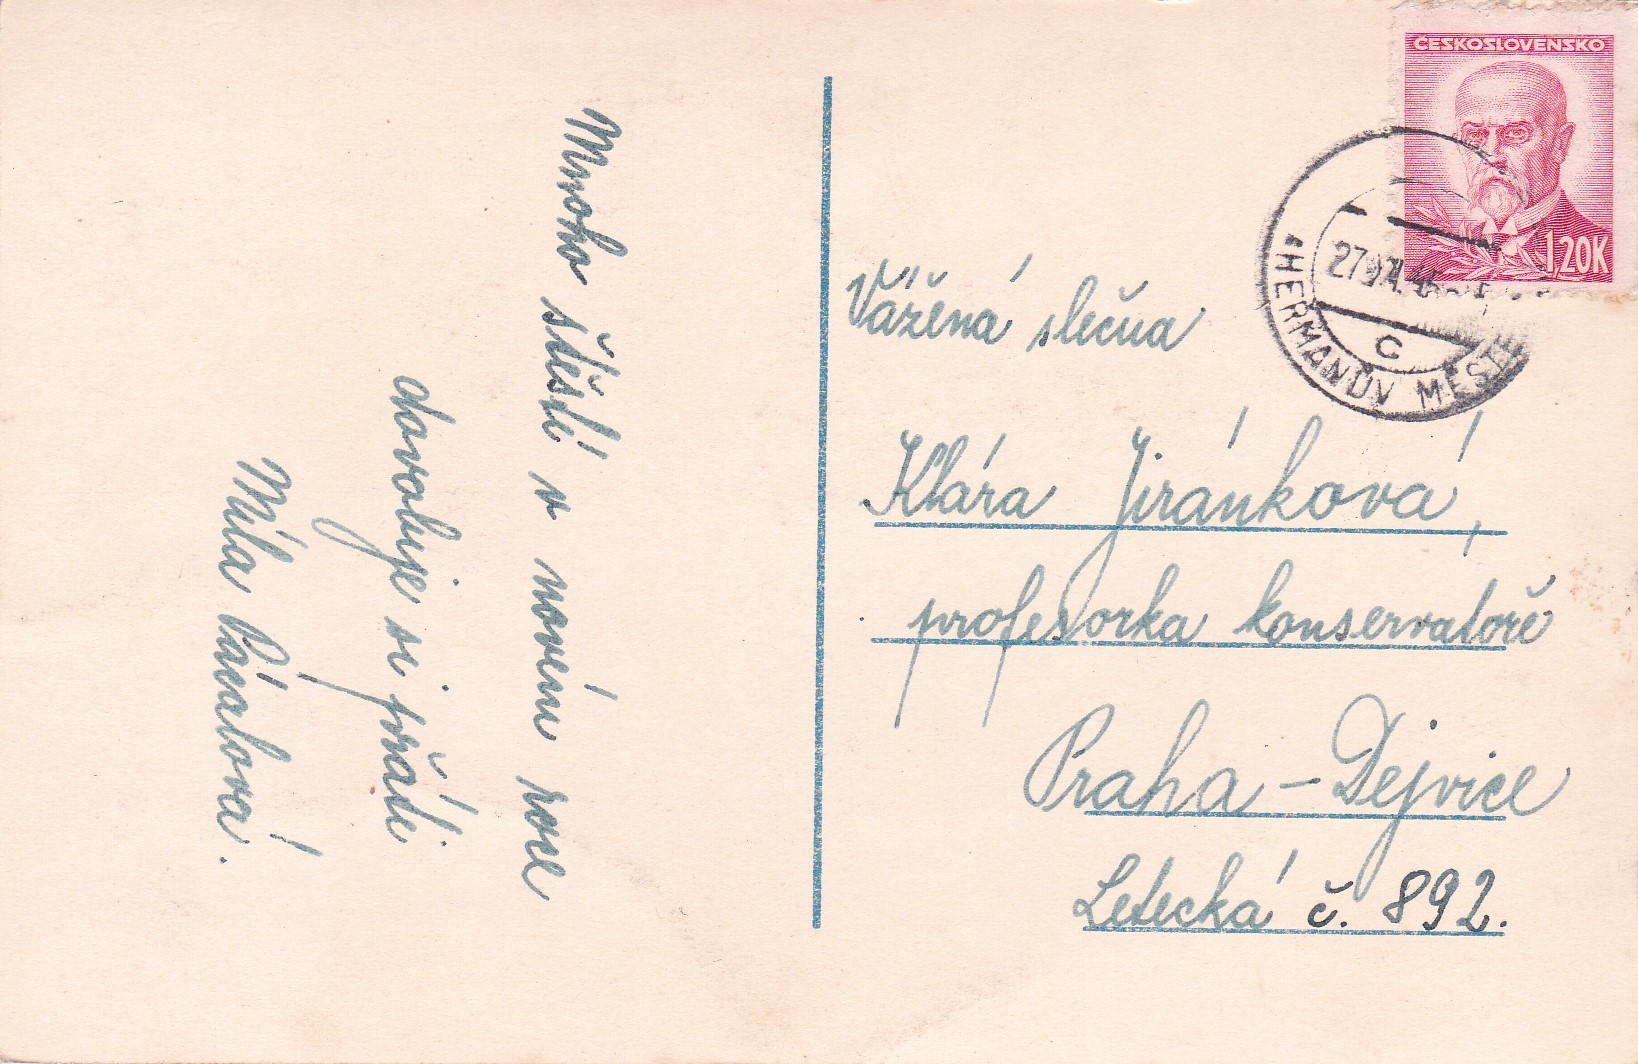 Mnoho štěstí v novém roce
dovoluje si přáti
Míla Pásalová.
ČESKOSLOVENSKO
1,20K
HEŘMANŮV MĚSTEC
C
Vážená slečna
Klára Jiránková,
profesorka konservatoře
Praha - Dejvice
Letecká č. 892.